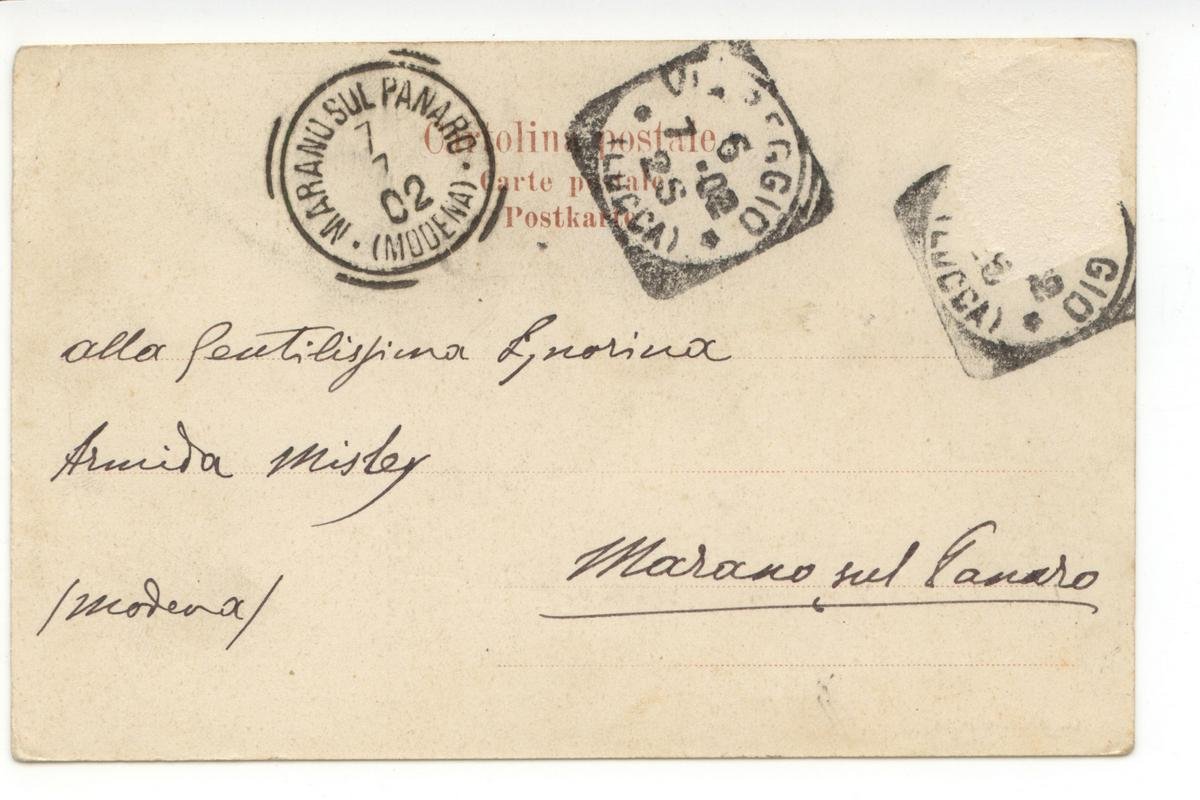 MARANO SUL PANARO
7
02
(MODENA)
VIAREGGIO
6
7 .02
25
(LUCCA)
Cartolina postale
Carte postale
Postkarte
GIO
(LUCCA)
alla Gentilissima Signorina
Armida Misley
Marano sul Panaro
/Modena/